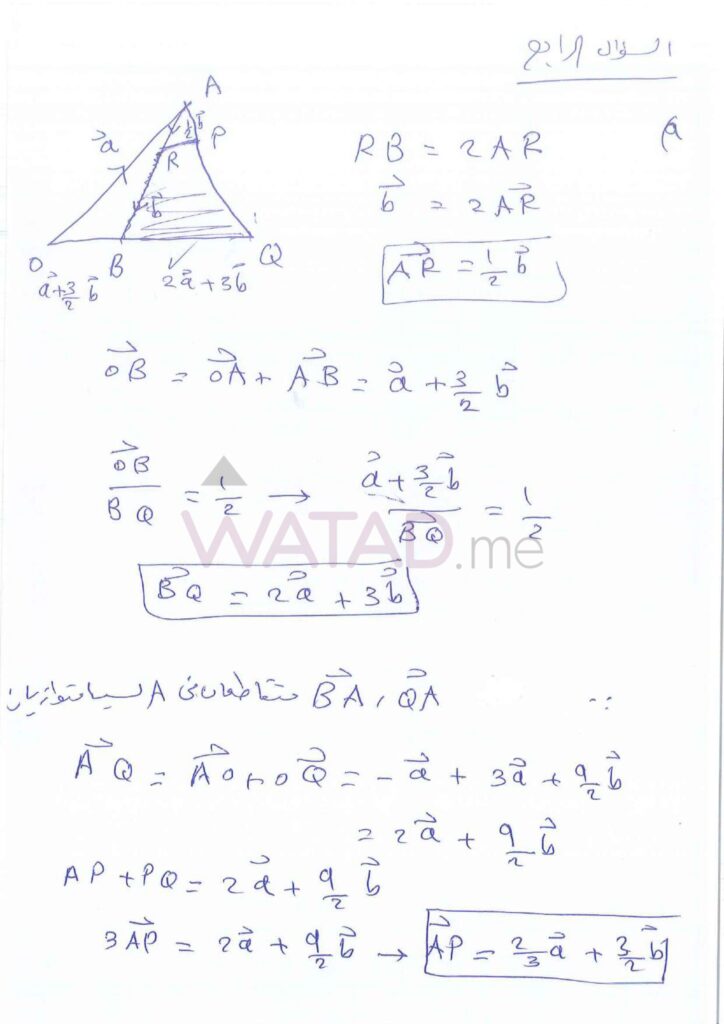 السؤال الرابع
a)
A
a⃗
½ b⃗
P
R
b⃗
O
B
Q
a⃗ + 3/2 b⃗
2a⃗ + 3b⃗
RB = 2AR
b⃗ = 2AR⃗
AR⃗ = ½ b⃗
OB⃗ = OA⃗ + AB⃗ = a⃗ + 3/2 b⃗
OB⃗ / BQ = 1/2 → (a⃗ + 3/2 b⃗) / BQ⃗ = 1/2
WATAD.me
BQ⃗ = 2a⃗ + 3b⃗
∵ QA⃗ , BA⃗ متقاطعان في A ليسا متوازيان
AQ⃗ = AO⃗ + OQ⃗ = -a⃗ + 3a⃗ + 9/2 b⃗
= 2a⃗ + 9/2 b⃗
AP + PQ = 2a⃗ + 9/2 b⃗
3AP⃗ = 2a⃗ + 9/2 b⃗ → AP⃗ = 2/3 a⃗ + 3/2 b⃗